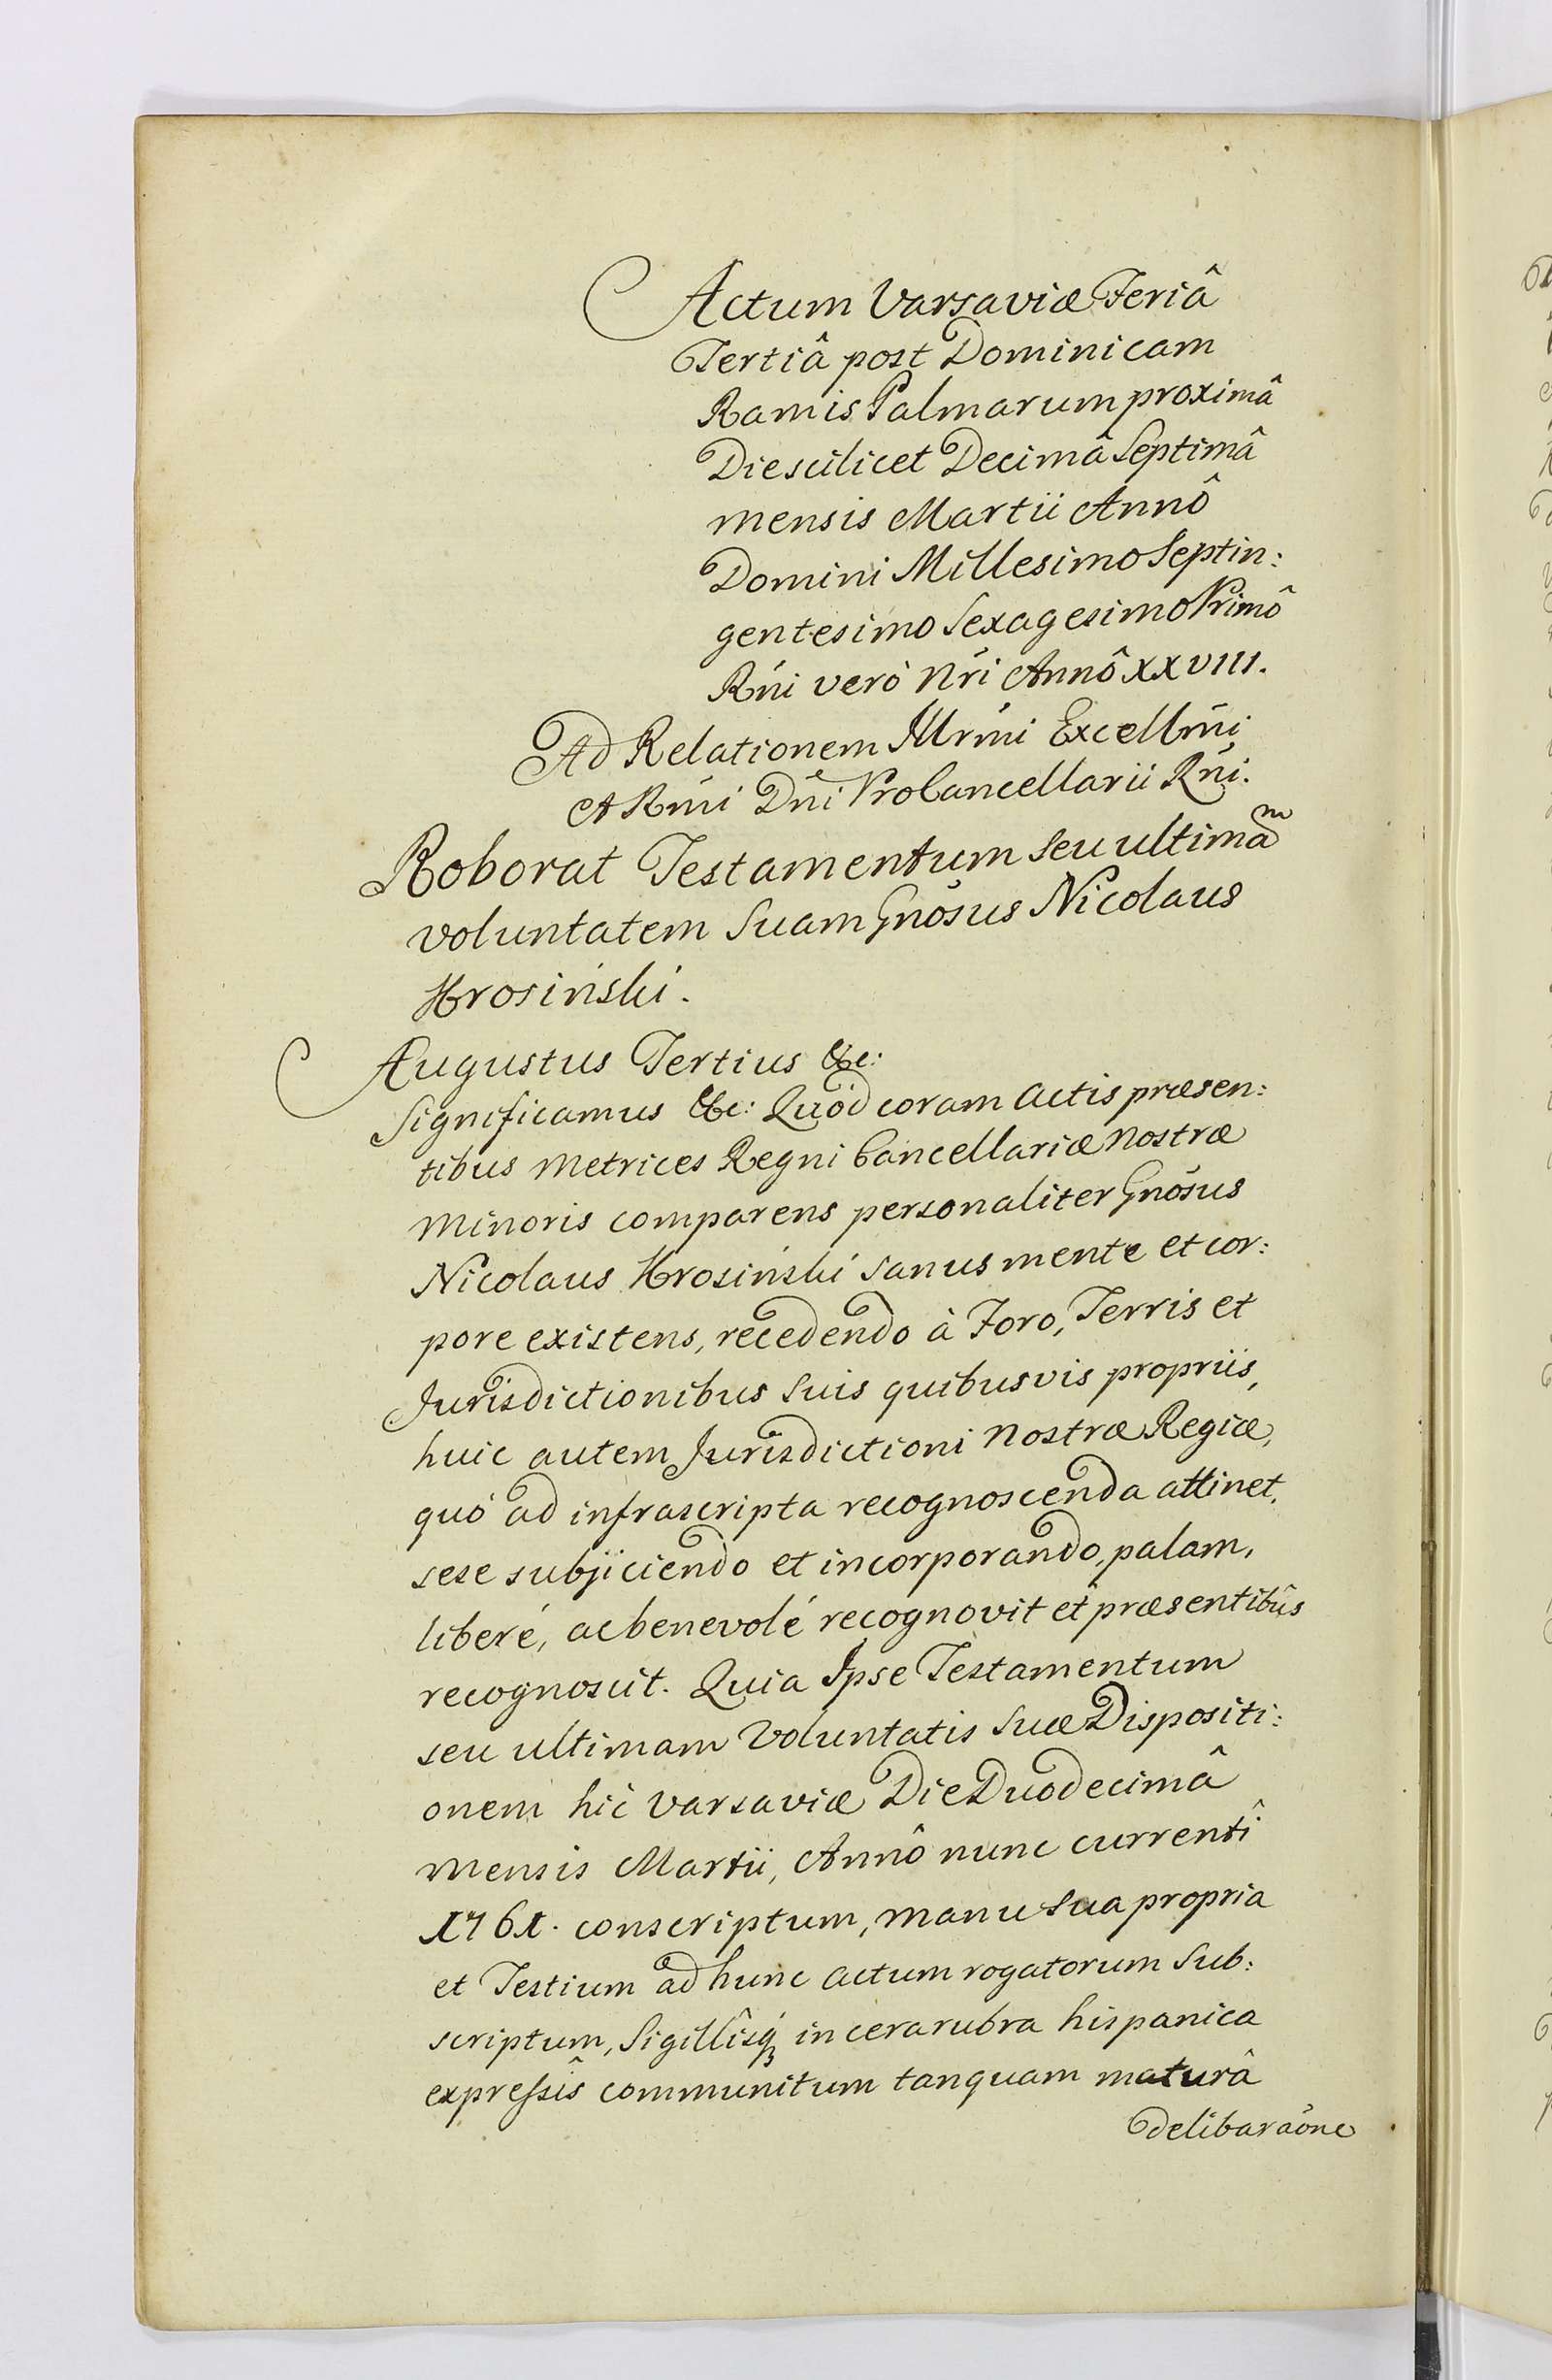 Actum Varsaviæ Feriâ
Tertiâ post Dominicam
Ramis Palmarum proximâ
Die scilicet Decimâ Septimâ
mensis Martii Annô
Domini Millesimo Septin:
gentesimo Sexagesimo Primô
Rńi verò Nŕi Annô XXVIII.
Ad Relationem Illrḿi Excellḿi
et Rḿi Dńi ProCancellarii Rńi.
Roborat Testamentum seu ultimam
voluntatem Suam Gnósus Nicolaus
Hrosiński.
Augustus Tertius &c:
Significamus &c: Quód coram Actis præsen:
tibus Metrices Regni Cancellariæ Nostræ
Minoris comparens personaliter Gnósus
Nicolaus Hrosiński sanus mente et cor:
pore existens, recedendo à Foro, Terris et
Jurisdictionibus Suis quibusvis propriis,
huic autem Jurisdictioni Nostræ Regiæ,
quó ad infrascripta recognoscenda attinet,
sese subjiciendo et incorporando, palam,
liberé, ac benevolé recognovit et præsentibûs
recognoscit. Quia Ipse Testamentum
seu ultimam Voluntatis Suæ Dispositi:
onem hîc Varsaviæ Die Duodecimâ
Mensis Martii, Annô nunc currentî
1761. conscriptum, manu sua propria
et Testium ad hunc Actum rogatorum Sub:
scriptum, Sigillîsq́ in cera rubra hispanica
expressîs communitum tanquam maturâ
delibaraóne